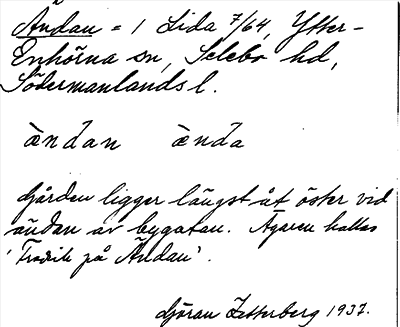 Ändan = 1 Lida 7/64, Ytter-
Enhörna sn, Selebo hd,
Södermanlands l.
ändan ända
Gården ligger längst åt öster vid
ändan av bygatan. Ägaren kallas
'Fredrik på Ändan'.
Göran Zetterberg 1937.